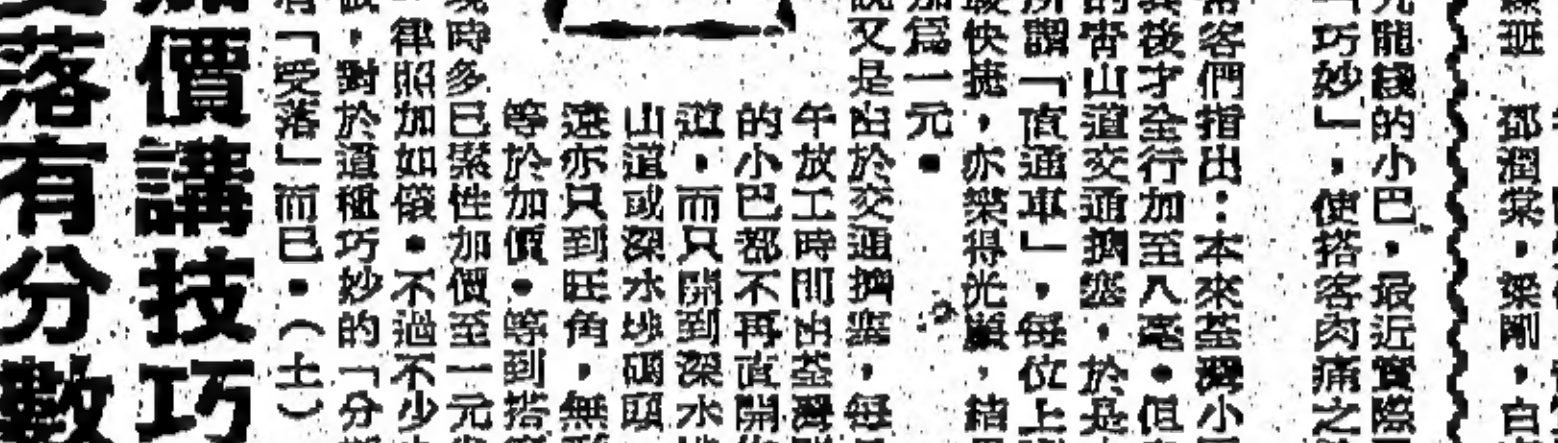 鄧潤棠，梁剛，白
九龍綫的小巴，最近實際
「巧妙」，使搭客肉痛之
常客們指出：本來荃灣小
後才全行加至八毫。但
的青山道交通擠塞，於是
所謂「直通車」，每位上
快捷，亦樂得光顧，結
加爲一元。
說又是由於交通擠塞，每
午放工時間由荃灣
的小巴都不再直開
道，而只開到深水
山道或深水埗碼頭
遠亦只到旺角，無
等於加價。等到搭
時多已索性加價至一元
律照加如儀。不過不少
，對於這種巧妙的「分
有「受落」而已。（士）
價講技巧
落有分數